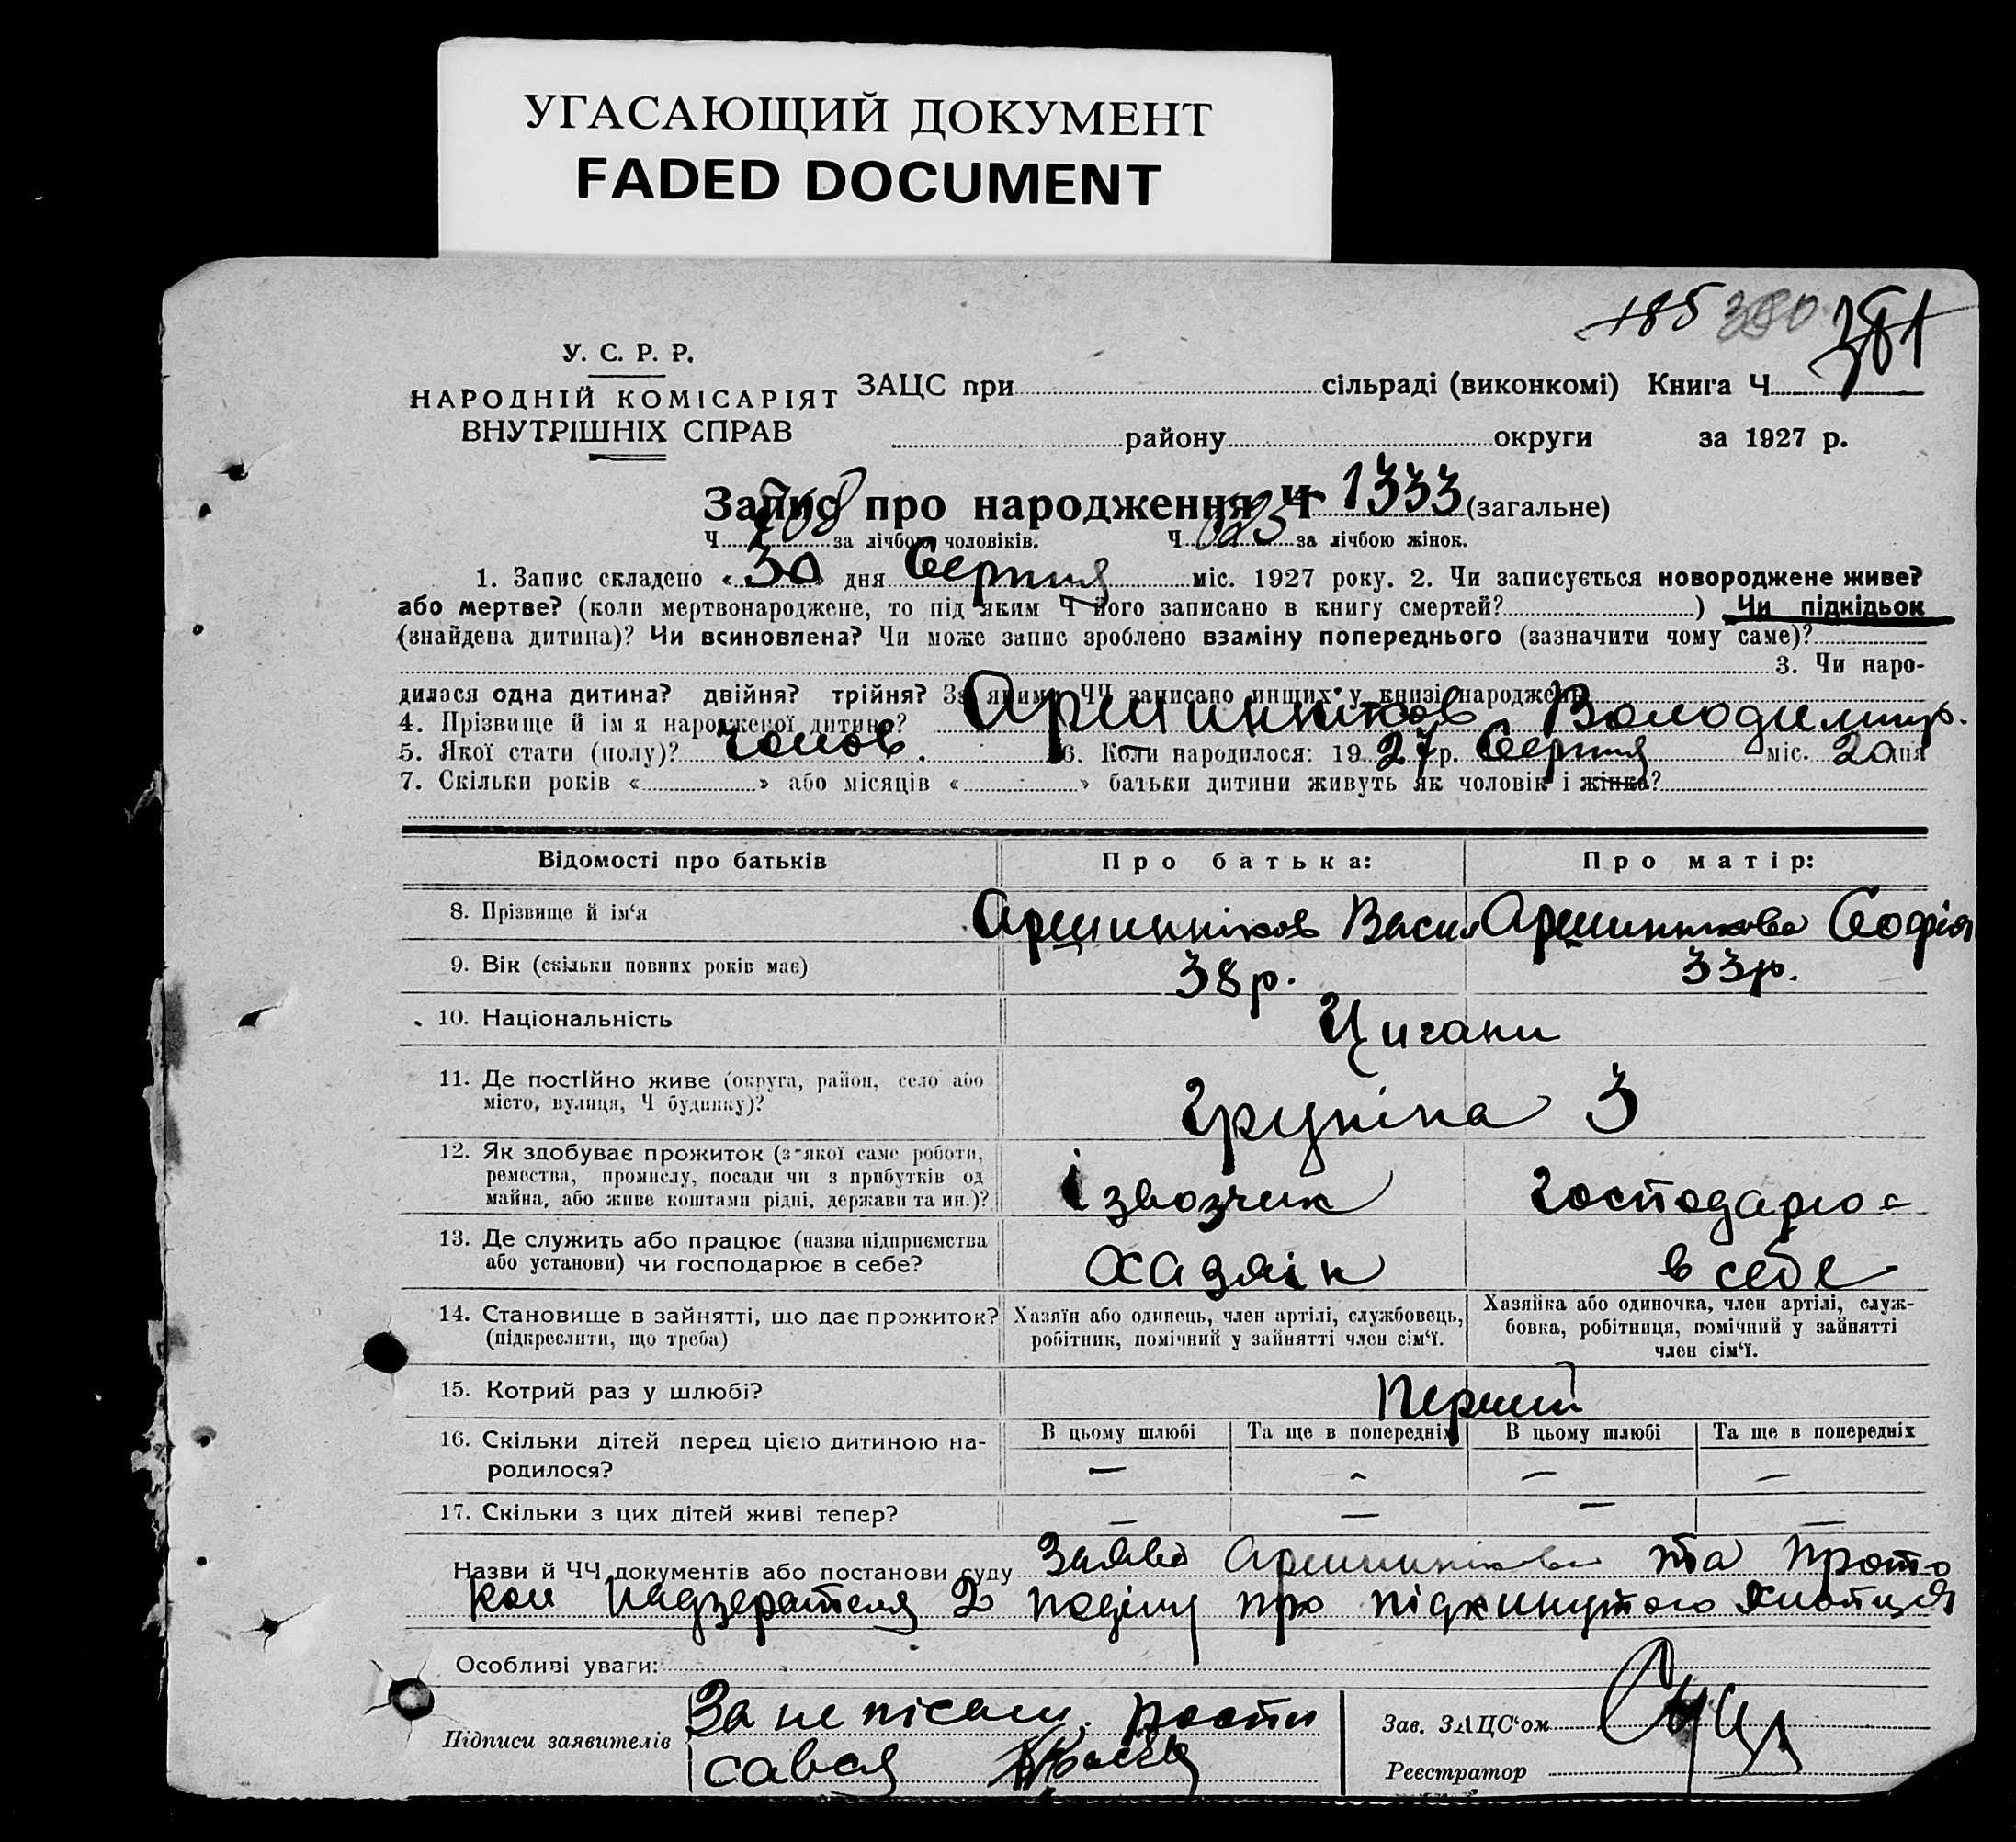 УГАСАЮЩИЙ ДОКУМЕНТ
FADED DOCUMENT
185 380 381
У. С. Р. Р.
НАРОДНІЙ КОМІСАРІЯТ
ВНУТРІШНІХ СПРАВ
ЗАЦС при сільраді (виконкомі) Книга Ч
району округи за 1927 р.
Запис про народження Ч 1333 (загальне)
Ч за лічбою чоловіків. Ч за лічбою жінок.
1. Запис складено « 30 » дня Серпня міс. 1927 року. 2. Чи записується новороджене живе?
або мертве? (коли мертвонароджене, то під яким Ч його записано в книгу смертей? ) Чи підкідьок
(знайдена дитина)? Чи всиновлена? Чи може запис зроблено взаміну попереднього (зазначити чому саме)?
3. Чи наро-
дилася одна дитина? двійня? трійня? За якими ЧЧ записано инших у книзі народжень
4. Прізвище й ім я народженої дитини? Аршинніков Володимир.
5. Якої стати (полу)? чолов. 6. Коли народилося: 19 27 р. Серпня міс. 20 дня
7. Скільки років « » або місяців « » батьки дитини живуть як чоловік і жінка?
Відомості про батьків Про батька: Про матір:
8. Прізвище й ім‘я Аршинніков Васил Аршиннікова Софія
9. Вік (скільки повних років має) 38 р. 33 р.
10. Національність Цигани
11. Де постійно живе (округа, район, село або
місто, вулиця, Ч будинку)? 3
12. Як здобуває прожиток (з якої саме роботи,
ремества, промислу, посади чи з прибутків од
майна, або живе коштами рідні, держави та ин.)? ізвозчик господарює
13. Де служить або працює (назва підприємства
або установи) чи господарює в себе? хазяїн в себе
14. Становище в зайнятті, що дає прожиток?
(підкреслити, що треба)
Хазяїн або одинець, член артілі, службовець,
робітник, помічний у зайнятті член сім‘ї.
Хазяйка або одиночка, член артілі, служ-
бовка, робітниця, помічний у зайнятті
член сім‘ї.
15. Котрий раз у шлюбі? Перший
16. Скільки дітей перед цією дитиною на-
родилося?
В цьому шлюбі Та ще в попередніх В цьому шлюбі Та ще в попередніх
— — — —
17. Скільки з цих дітей живі тепер? — — — —
Назви й ЧЧ документів або постанови суду Заява Аршиннікова та прото
кол надзерателя 2 поділу про підкинутого хлопця
Особливі уваги:
Підписи заявителів За не пісьм. роспи
сався
Зав. ЗАЦС‘ом
Реєстратор